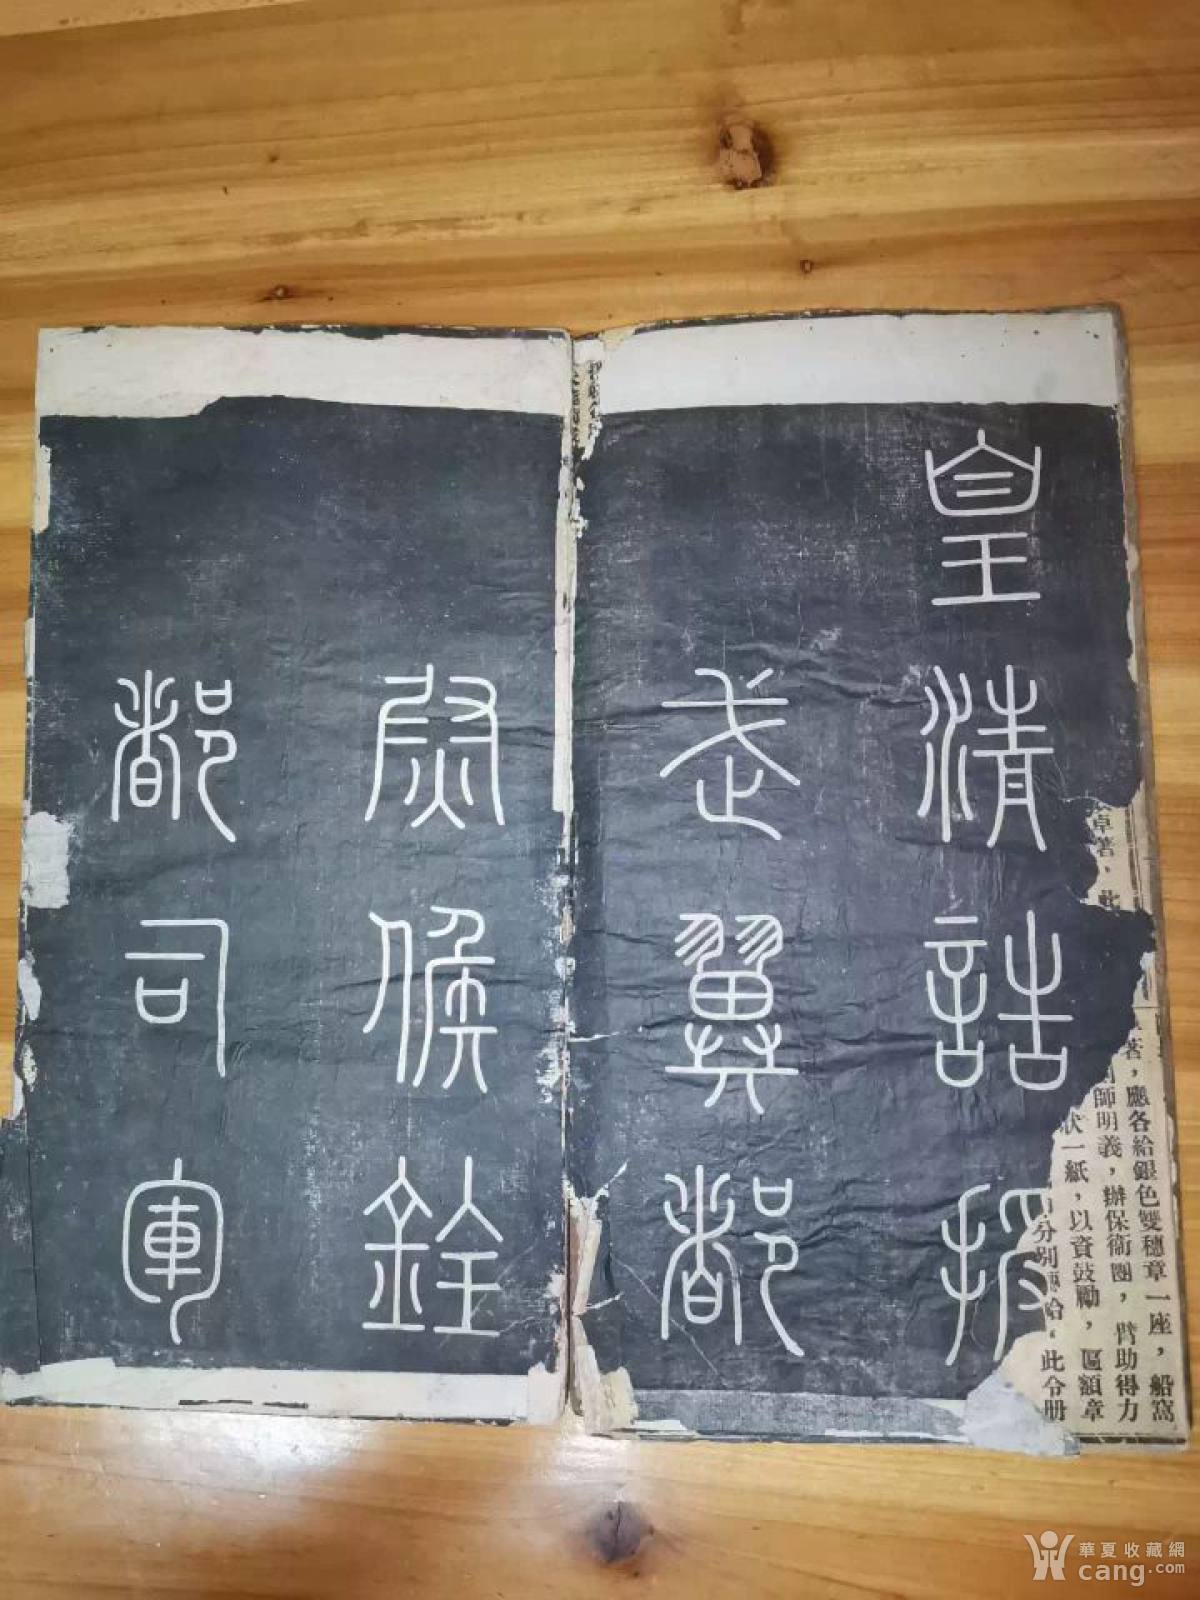 皇清誥授
武翼都
尉候銓
都司軍
卓著，此
著，應各給銀色雙穗章一座，船窩
師明義，辦保衞團，臂助得力
狀一紙，以資鼓勵，匾額章
分別
此令册
華夏收藏網
cang.com